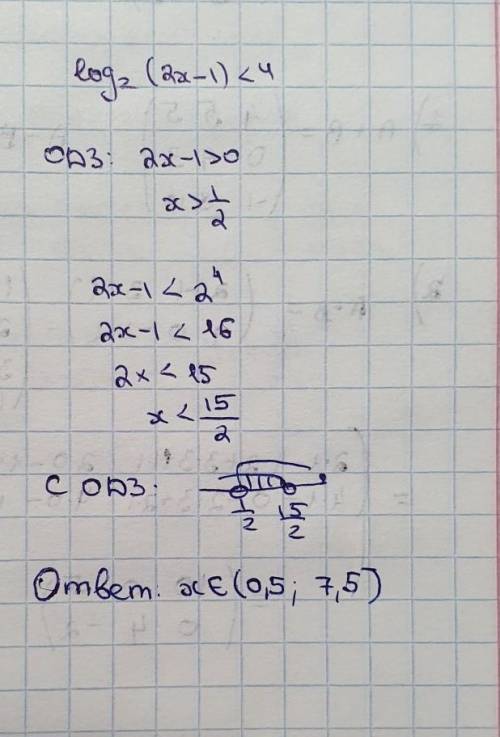 log₂ (2x-1) < 4
ОДЗ: 2x-1>0
x > 1/2
2x-1 < 2⁴
2x-1 < 16
2x < 15
x < 15/2
С ОДЗ:
1/2 15/2
Ответ: x∈(0,5; 7,5)